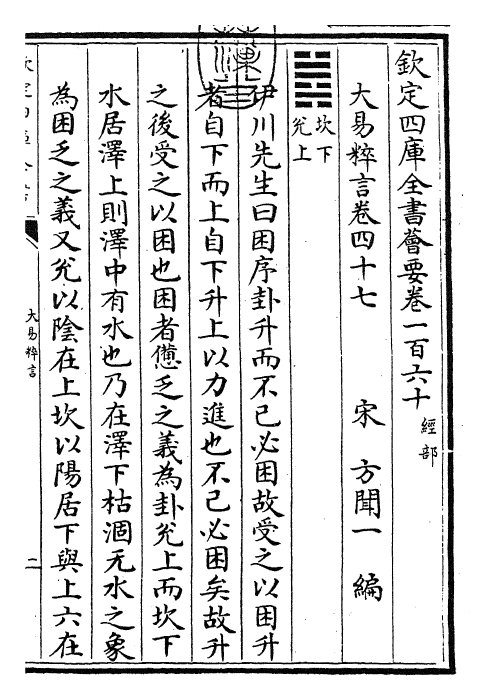 欽定四庫全書薈要卷一百六十
經部
大易粹言卷四十七
宋 方聞一 編
坎下
兊上
伊川先生曰困序卦升而不已必困故受之以困升
者自下而上自下升上以力進也不已必困矣故升
之後受之以困也困者憊乏之義為卦兊上而坎下
水居澤上則澤中有水也乃在澤下枯涸无水之象
為困乏之義又兊以陰在上坎以陽居下與上六在
大易粹言